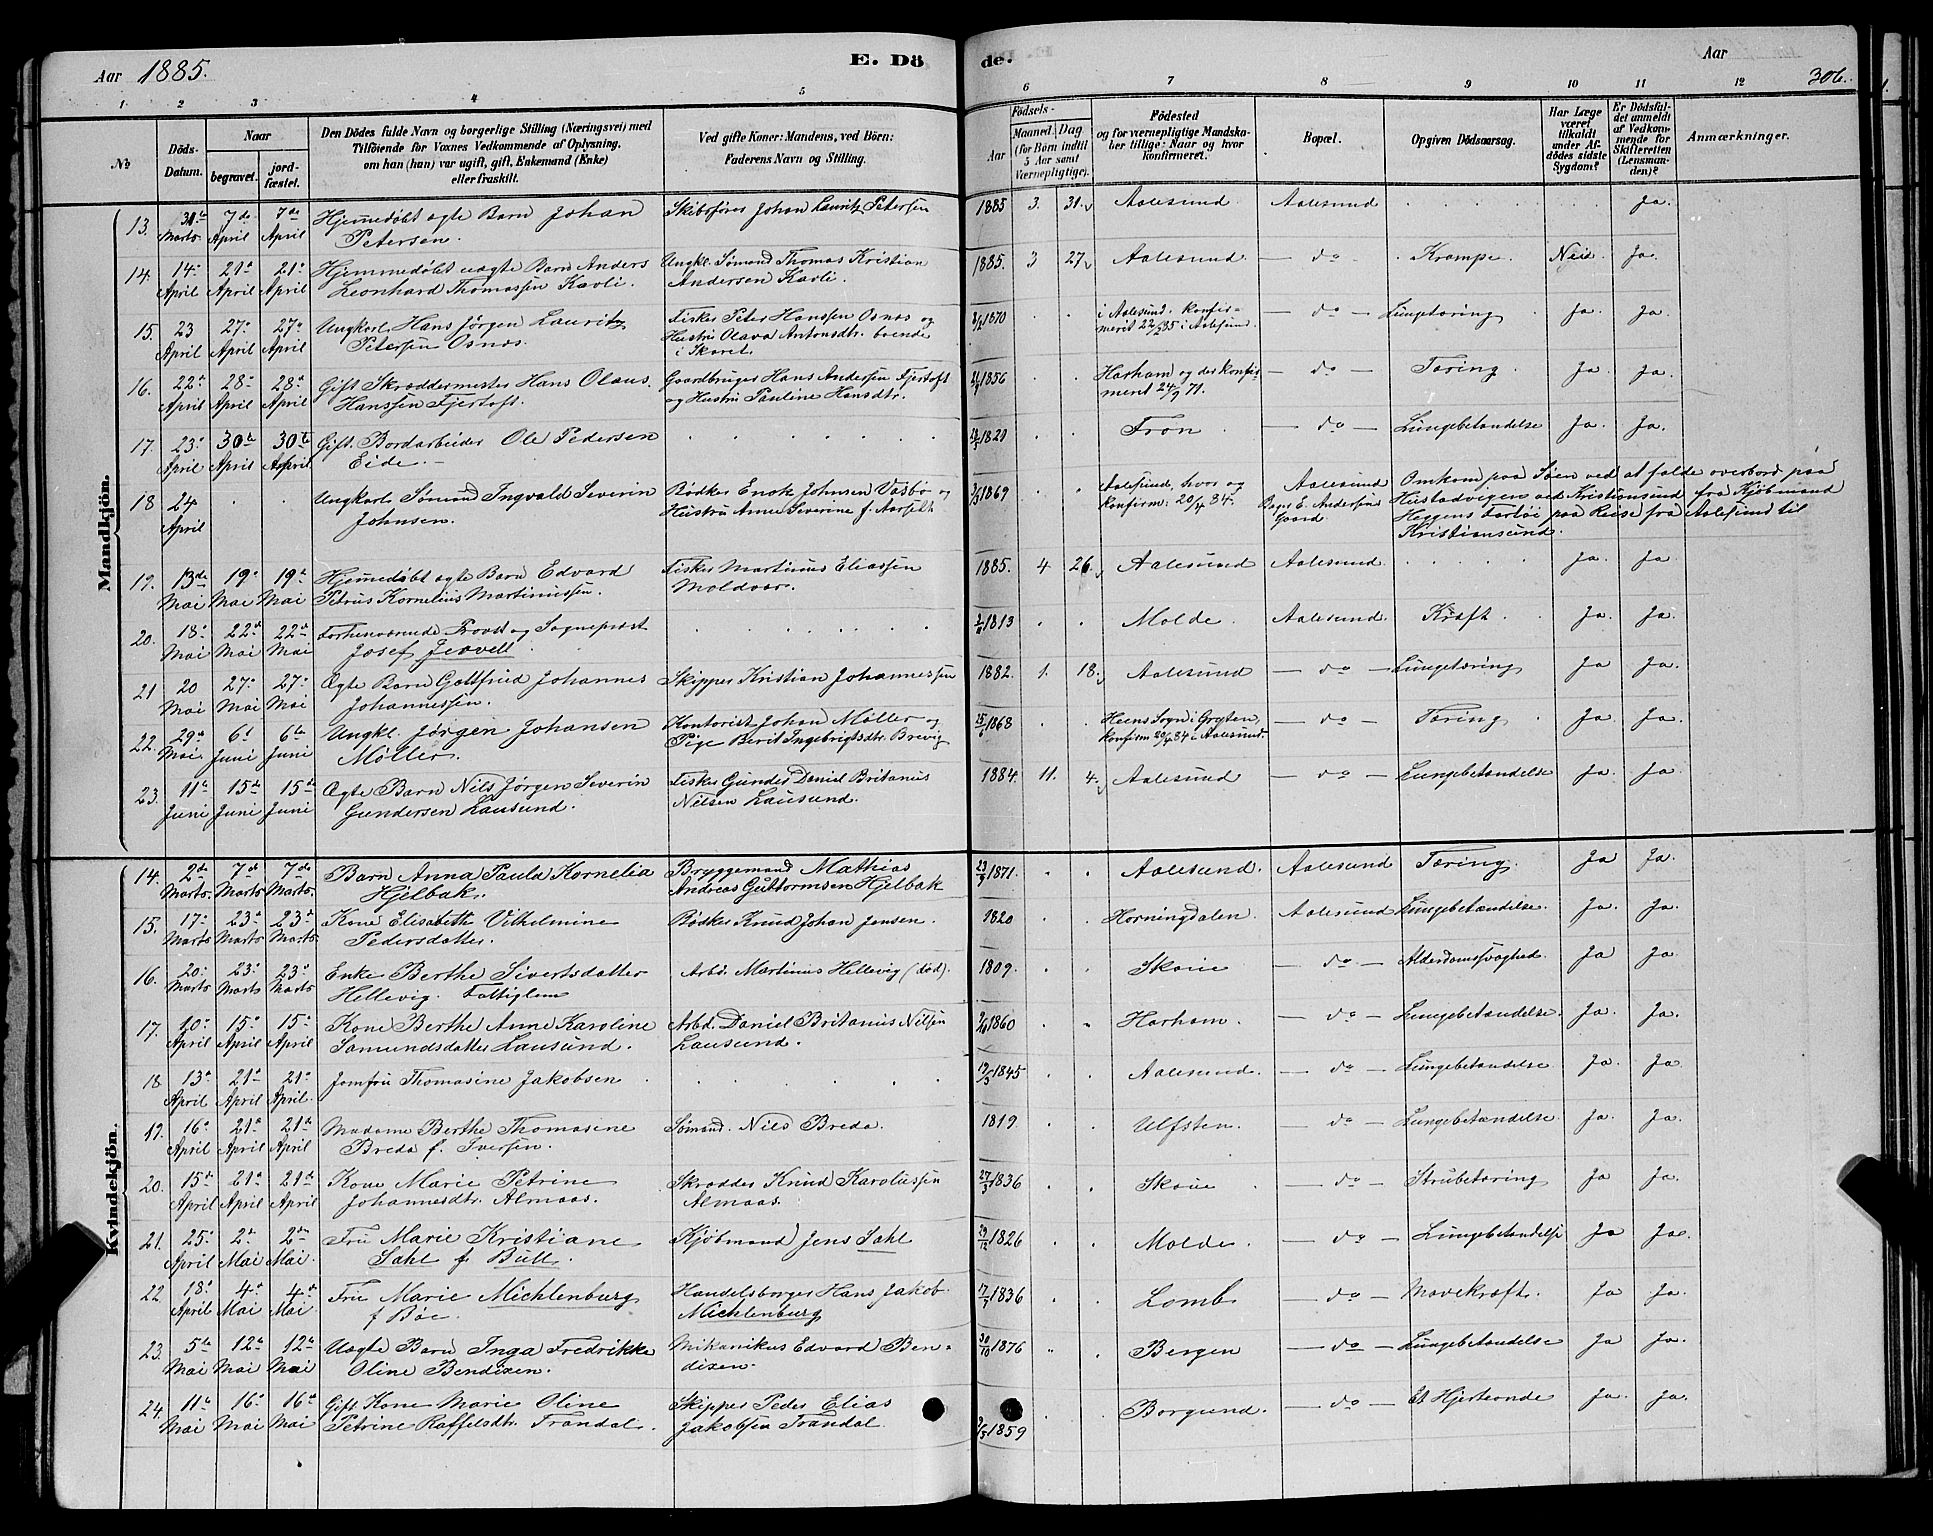 Aar 1885. E. Dö de. Aar 306.
1. 2 3 4 5 6 7 8 9 10 11 12
No
Döds-Datum.
Naar
begravet. jordfæstet.
Den Dödes fulde Navn og borgerlige Stilling (Næringsvei) med
Tilföiende for Voxnes Vedkommende af Oplysning,
om han (hun) var ugift, gift, Enkemand (Enke)
eller fraskilt.
Ved gifte Koner: Mandens, ved Börn:
Faderens Navn og Stilling.
Födsels-
Aar Maaned. Dag
(for Börn indtil
5 Aar samt
Værnepligtige).
Födested
og for værnepligtige Mandska-
ber tillige: Naar og hvor
konfirmeret.
Bopæl.
Opgiven Dödsaarsag.
Har Læge
været
tilkaldt
under Af-
dödes sidste
Sygdom?
Er Dödsfal-
det anmeldt
af Vedkom-
mende for
Skifteretten
(Lensman-
den)?
Anmærkninger.
Mandkjön.
13. 31te Marts 7de April 7de April Hjemmedøbt ægte Barn Johan Petersen. Skibsfører Johan Lauritz Petersen 1885 3. 31. Aalesund Aalesund Ja.
14. 14. April 21. April 21. April Hjemmedøbt uægte Barn Anders Leonhard Thomassen Kavli. Ungkl. Sømand Thomas Kristian Andersen Kavli. 1885. 3 27. Aalesund — do — Krampe. Nei. Ja.
15. 23 April 27. April 27. April Ungkarl Hans Jørgen Lauritz Petersen Osnæs. Fisker Peter Hanssen Osnæs og Hustru Olava Antonsdtr. boende i Skaret. 1870 i Aalesund. Konfirmeret i Aalesund. — do — Lungetæring Ja. Ja.
16. 22. April 28. April 28. April Gift Skræddermester Hans Olaus Hanssen Fjertoft. Gaardbruger Hans Andersen Fjertoft og Hustru Pauline Hansdtr. 1856 Harham og der konfirmeret 24/9 71. — do — Tæring Ja. Ja.
17. 23. April 30te April 30te April Gift. Bordarbeider Ole Pedersen Eide. 1829 Fron — do — Lungebetændelse Ja. Ja.
18 24 April Ungkarl Sømand Ingvald Severin Johnsen. Bødker Enok Johnsen Vasbø og Hustru Anne Severine f. Aarseth 1869 Aalesund, hvor og konfirm. 20/4 84. Aalesund Bager E. Andersens Gaard. Omkom paa Søen ved at falde overbord paa Hustadvigen ved Kristiansund fra Kjøbmand Heggens Fartøi paa Reise fra Aalesund til Kristiansund.
19. 13de Mai 19. Mai 19. Mai Hjemmedøbt ægte Barn Edvard Petrus Kornelius Martinussen. Fisker Martinus Eliassen Moldvær. 1885. 4 26. Aalesund Aalesund. Ja. Ja
20. 18. Mai 22. Mai 22. Mai Forhenværende Provst og Sognepræst Josef Jervell 1813 Molde. Aalesund. Kræft Ja. Ja.
21 20 Mai 27. Mai 27. Mai Ægte Barn Gottfried Johannes Johannessen. Skipper Kristian Johannessen 1882. 1. 18. Aalesund — do — Lungetæring Ja Ja.
22. 29. Mai. 6. Juni 6te Juni Ungkl. Jørgen Johansen Møller. Kontorist Johan Møller og Pige Berit Ingebrigtsdtr. Brevig 1868 Heens Sogn i Gryten, konfirm 20/4 84 i Aalesund. — do — Tæring Ja. Ja.
23. 11. Juni 15de Juni 15de Juni Ægte Barn Nils Jørgen Severin Gundersen Lausund. Fisker Gunder Daniel Britanus Nilsen Lausund. 1884. 11. 4. Aalesund — do — Lungebetændelse Ja. Ja
Kvindekjön.
14. 2de Marts 7de Marts 7de Marts. Barn Anna Paula Kornelia Hjelbak. Bryggemand Mathias Andreas Guttormsen Hjelbak 1871. Aalesund. Aalesund Tæring. Ja Ja.
15. 17. Marts 23. Marts 23. Marts. Kone Elisabeth Vilhelmine Pedersdatter. Bødker Knud Johan Jensen. 1820 Horningdalen. Aalesund Lungebetændelse. Ja. Ja.
16 20. Marts 23. Marts 23. Marts Enke Berthe Sivertsdatter Hellevig. Fattiglem Arbd. Martinus Hellevig (død). 1809. Skoue — do — Alderdomssvaghed. Ja Ja.
17. 10. April 15. April 15. April Kone Berthe Anne Karoline Samundsdatter Lausund. Arbd. Daniel Britanus Nilsen Lausund. 1860 Harham. — do — Lungebetændelse. Ja. Ja.
18 13. April 21. April 21. April. Jomfru Thomasine Jakobsen 19/3 1845 Aalesund. — do — Lungebetændelse Ja Ja.
19. 16. April 21. April 21. April Madame Berthe Thomasine Breda f. Iversen. Sømand. Nils Breda. 1819 Ulfsten. — do — Lungebetændelse. Ja. Ja.
20. 15. April 21. April 21. April Kone Marie Petrine Johannesdtr. Almaas. Skrædder Knud Karolussen Almaas. 27/3 1836 Skoue — do — Strubetæring Ja Ja.
21. 25. April 2. Mai 2den Mai. Fru Marie Kristiane Dahl f. Bull. Kjøbmand Jens Dahl 29/12 1826 Molde. — do — Lungebetændelse Ja Ja.
22 18. April 4. Mai 4. Mai Fru Marie Michlenburg f Bøe. Handelsborger Hans Jakob Michlenburg 17/7 1836 Lomb — do — Mavekræft. Ja Ja.
23. 5te Mai 12. Mai 12. Mai Uægte Barn Inga Fredrikke Oline Bendixen. Mikanikus Edvard Bendixen. 30/10 1876 Bergen — do — Lungebetændelse Ja Ja.
24. 11. Mai 16. Mai 16. Mai Gift Kone Marie Oline Petrine Raffelsdtr. Trandal. Skipper Peder Elias Jakobsen Trandal 1859 Borgund. — do — Et Hjerteonde Ja. Ja.